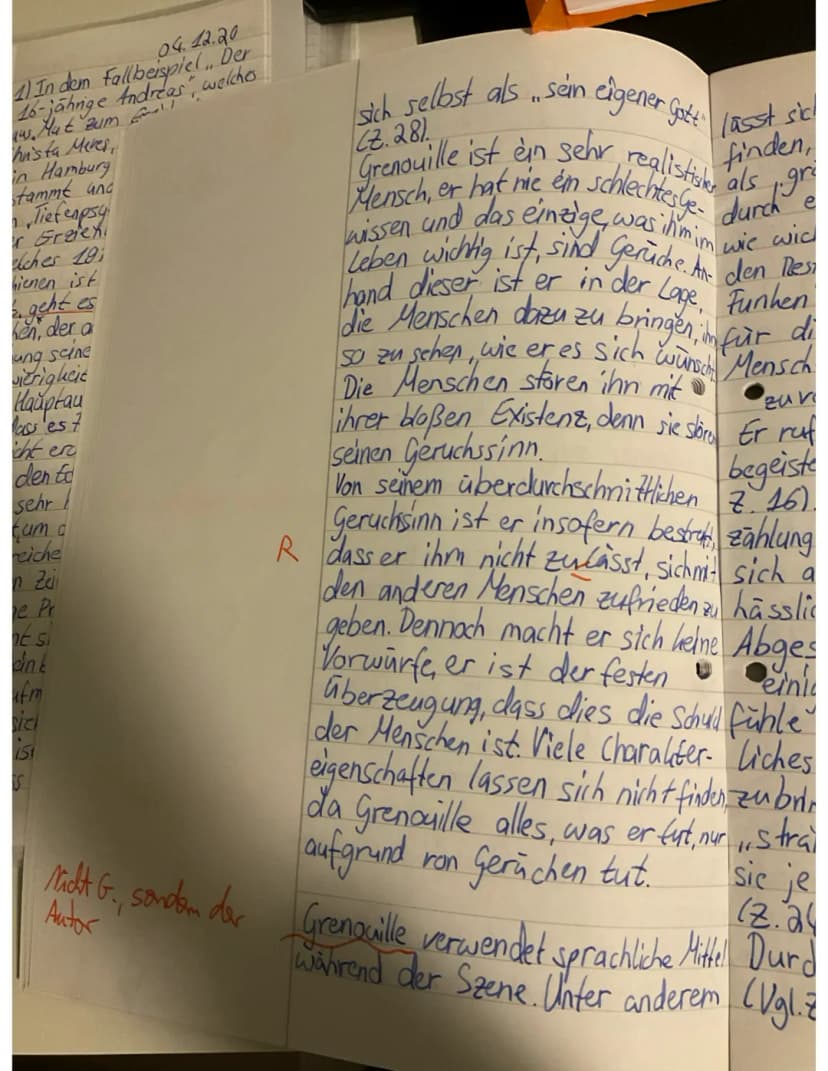 04.12.20
1) In dem Fallbeispiel „Der
16-jährige Andreas", welches
Mut zum
Christa Meves,
in Hamburg
stammt und
Tiefenpsy
r Erzieh
elches 19
hienen ist
geht es
der a
ung seine
wierigkeit
Hauptau
dass es
den
sehr
reiche
sich selbst als „sein eigener Gott"
(Z. 28).
Grenouille ist ein sehr realistischer
Mensch, er hat nie ein schlechtes Ge-
wissen und das einzige, was ihm im
Leben wichtig ist, sind Gerüche. An-
hand dieser ist er in der Lage,
die Menschen dazu zu bringen, ihn
so zu sehen, wie er es sich wünscht.
Die Menschen stören ihn mit
ihrer bloßen Existenz, denn sie stören
seinen Geruchssinn.
Von seinem überdurchschnittlichen
Geruchsinn ist er insofern bestraft,
R
dass er ihm nicht zulässt, sich mit
den anderen Menschen zufrieden zu
geben. Dennoch macht er sich keine
Vorwürfe, er ist der festen
Überzeugung, dass dies die Schuld
der Menschen ist. Viele Charakter-
eigenschaften lassen sich nicht finden,
da Grenouille alles, was er tut, nur
aufgrund von Gerüchen tut.
Nicht G., sondern der
Autor
Grenouille verwendet sprachliche Mittel
während der Szene. Unter anderem
lässt sic
finden,
als „gr
durch e
wie wic
den Mes
Funken
für di
Mensch
zuvo
Er ruf
begeiste
Z. 16).
zählung
sich a
hässlic
Abges
einig
fühle
liches
zubrin
„strä
sie je
(Z. 24
Durc
(Vgl. Z